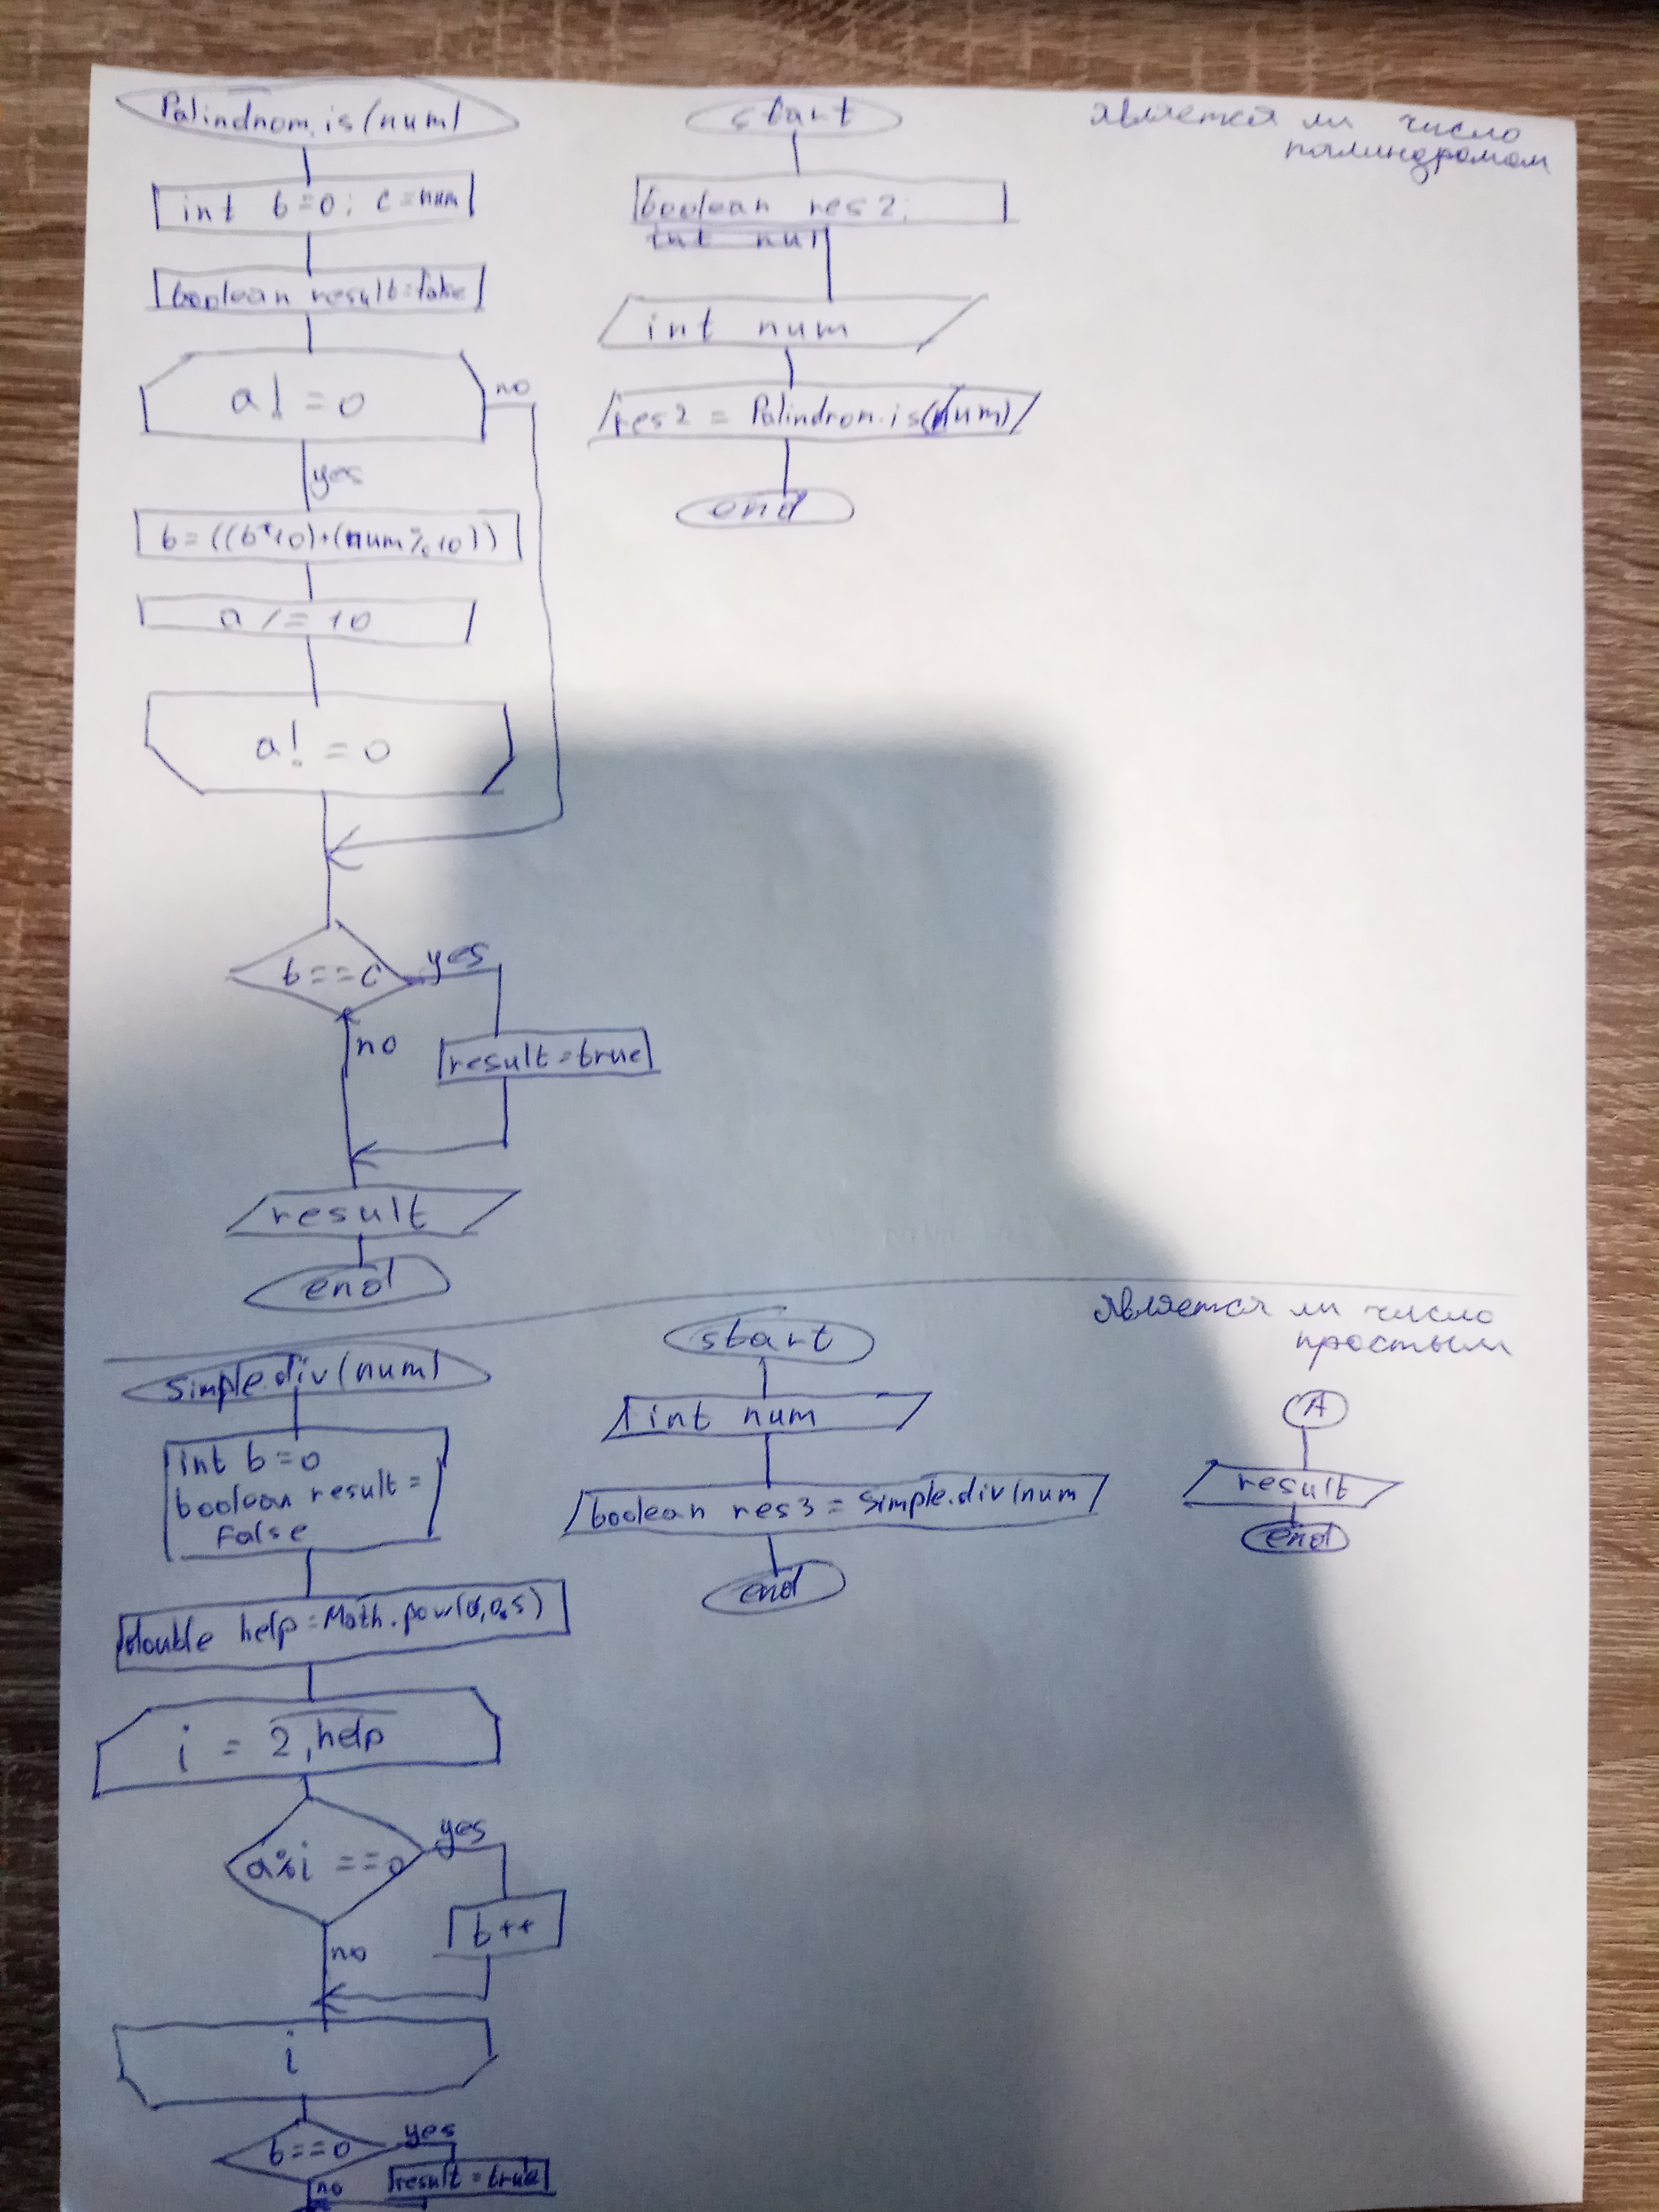 Palindrom.is(num)
int b=0; c=num
boolean result=false
a!=0
no
yes
b=((b*10)+(num%10))
a/=10
a!=0
b==c
yes
no
result=true
result
end
start
boolean res2;
int num
int num
res2 = Palindrom.is(num)
end
является ли число
палиндромом
simple.div(num)
int b=0
boolean result=
False
double help=Math.pow(a,0.5)
i = 2,help
a%i ==0
yes
b++
no
i
b==0
yes
result=true
no
start
int num
boolean res3 = Simple.div(num
end
является ли число
простым
A
result
end